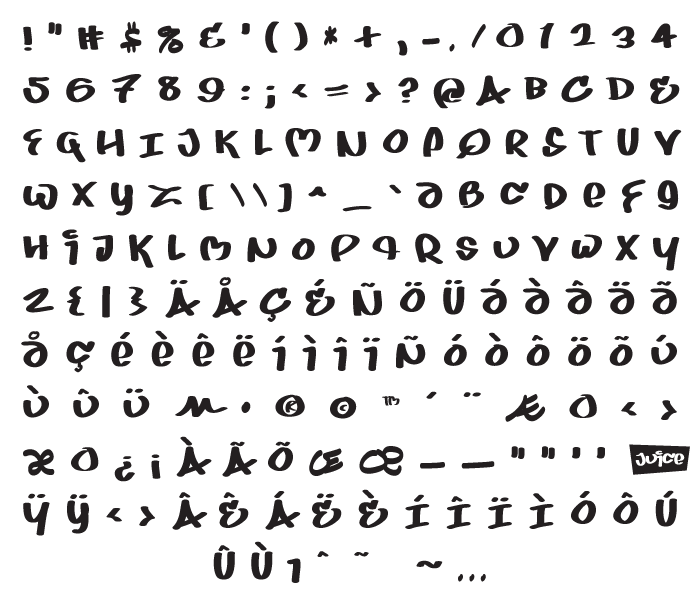 ! " # $ % & ' ( ) * + , - . / 0 1 2 3 4
5 6 7 8 9 : ; < = > ? @ A B C D E
F G H I J K L M N O P Q R S T U V
W X Y Z [ \ \ ] ^ _ ` a B C D e F g
H i J K L M N o P q R S U V W X y
Z { | } Ä Å Ç É Ñ Ö Ü á à â ä ã
å ç é è ê ë í ì î ï Ñ ó ò ô ö õ ú
ù û ü • ® © ™ ´ ¨ Æ O < >
æ O ¿ ¡ À Ã Õ Œ œ – — " " ' ' Juice
ÿ Ÿ ‹ › Â Ê Á Ë È Í Î Ï Ì Ó Ô Ú
Û Ù ı ˆ ˜ ~ ...